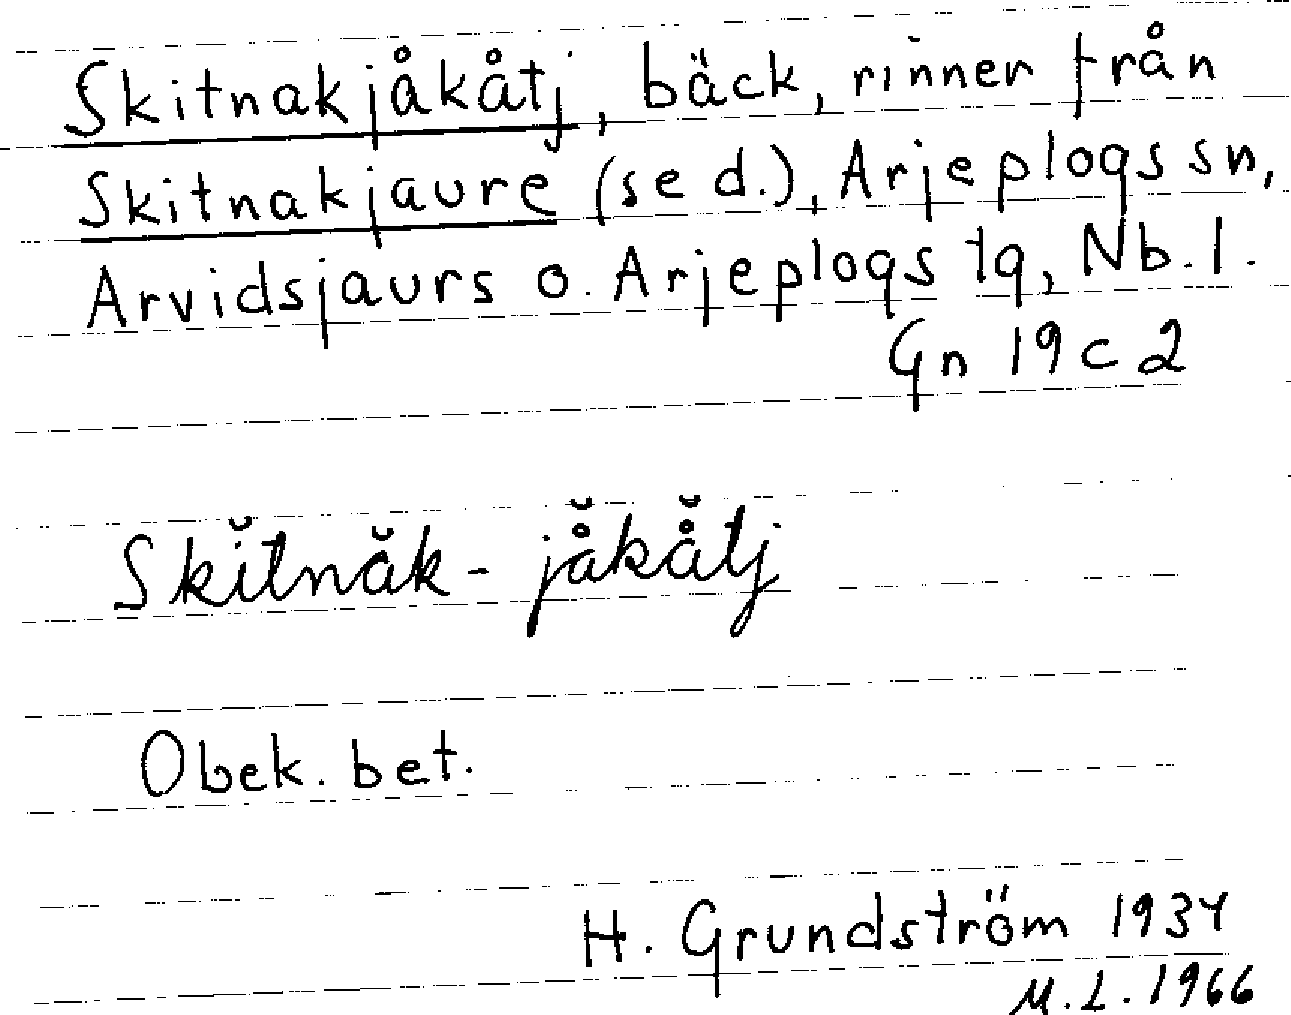 Skitnakjåkåtj, bäck, rinner från
Skitnakjaure (se d.), Arjeplogs sn,
Arvidsjaurs o. Arjeplogs tg, Nb. l.
Gn 19 c 2
Skĭtnăk-jå̆kå̆tj
Obek. bet.
H. Grundström 1934
M. L. 1966